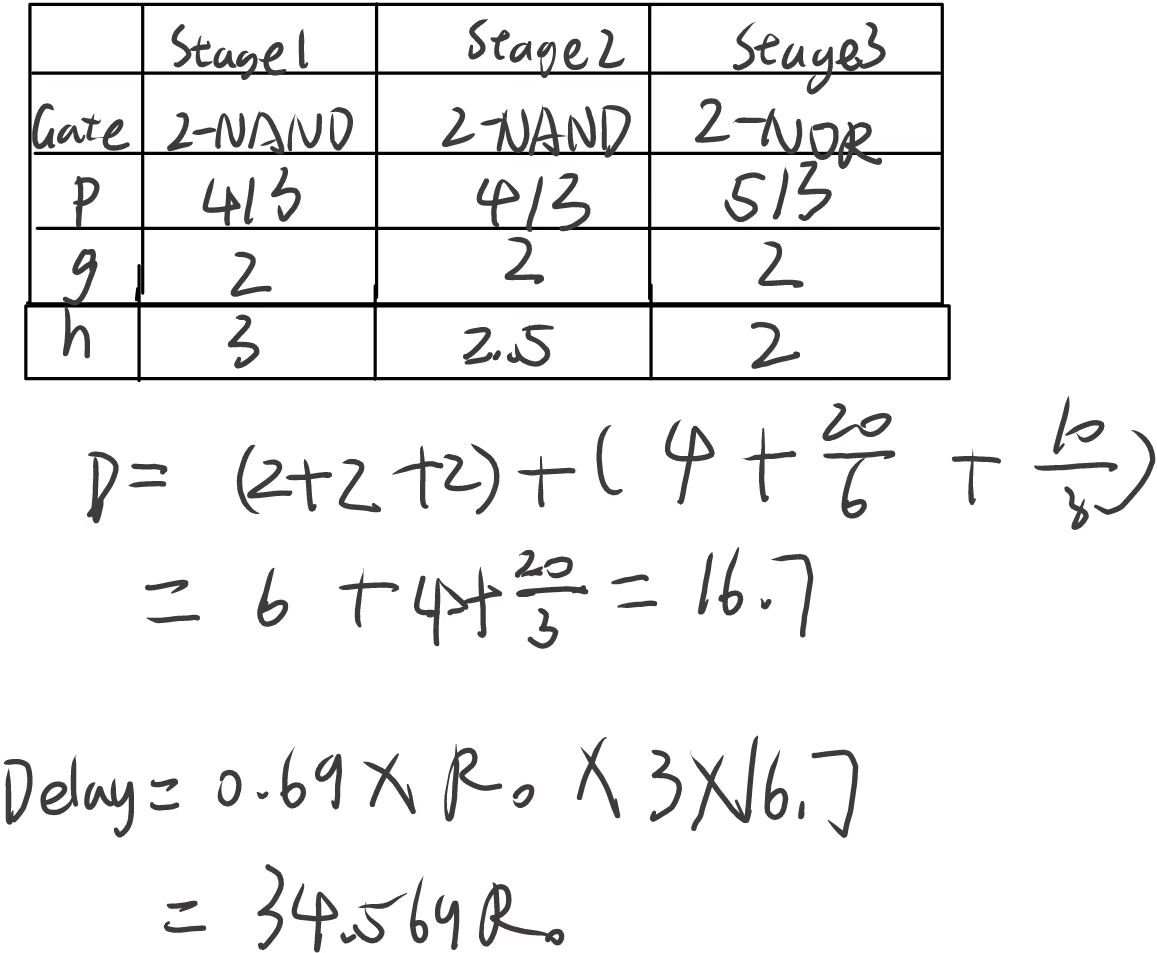 Stage1 Stage2 Stage3
Gate 2-NAND 2-NAND 2-NOR
P 4/3 4/3 5/3
g 2 2 2
h 3 2.5 2
D= (2+2+2)+(4+20/6+10/3)
= 6+4+20/3=16.7
Delay= 0.69×R₀×3×16.7
= 34.569R₀